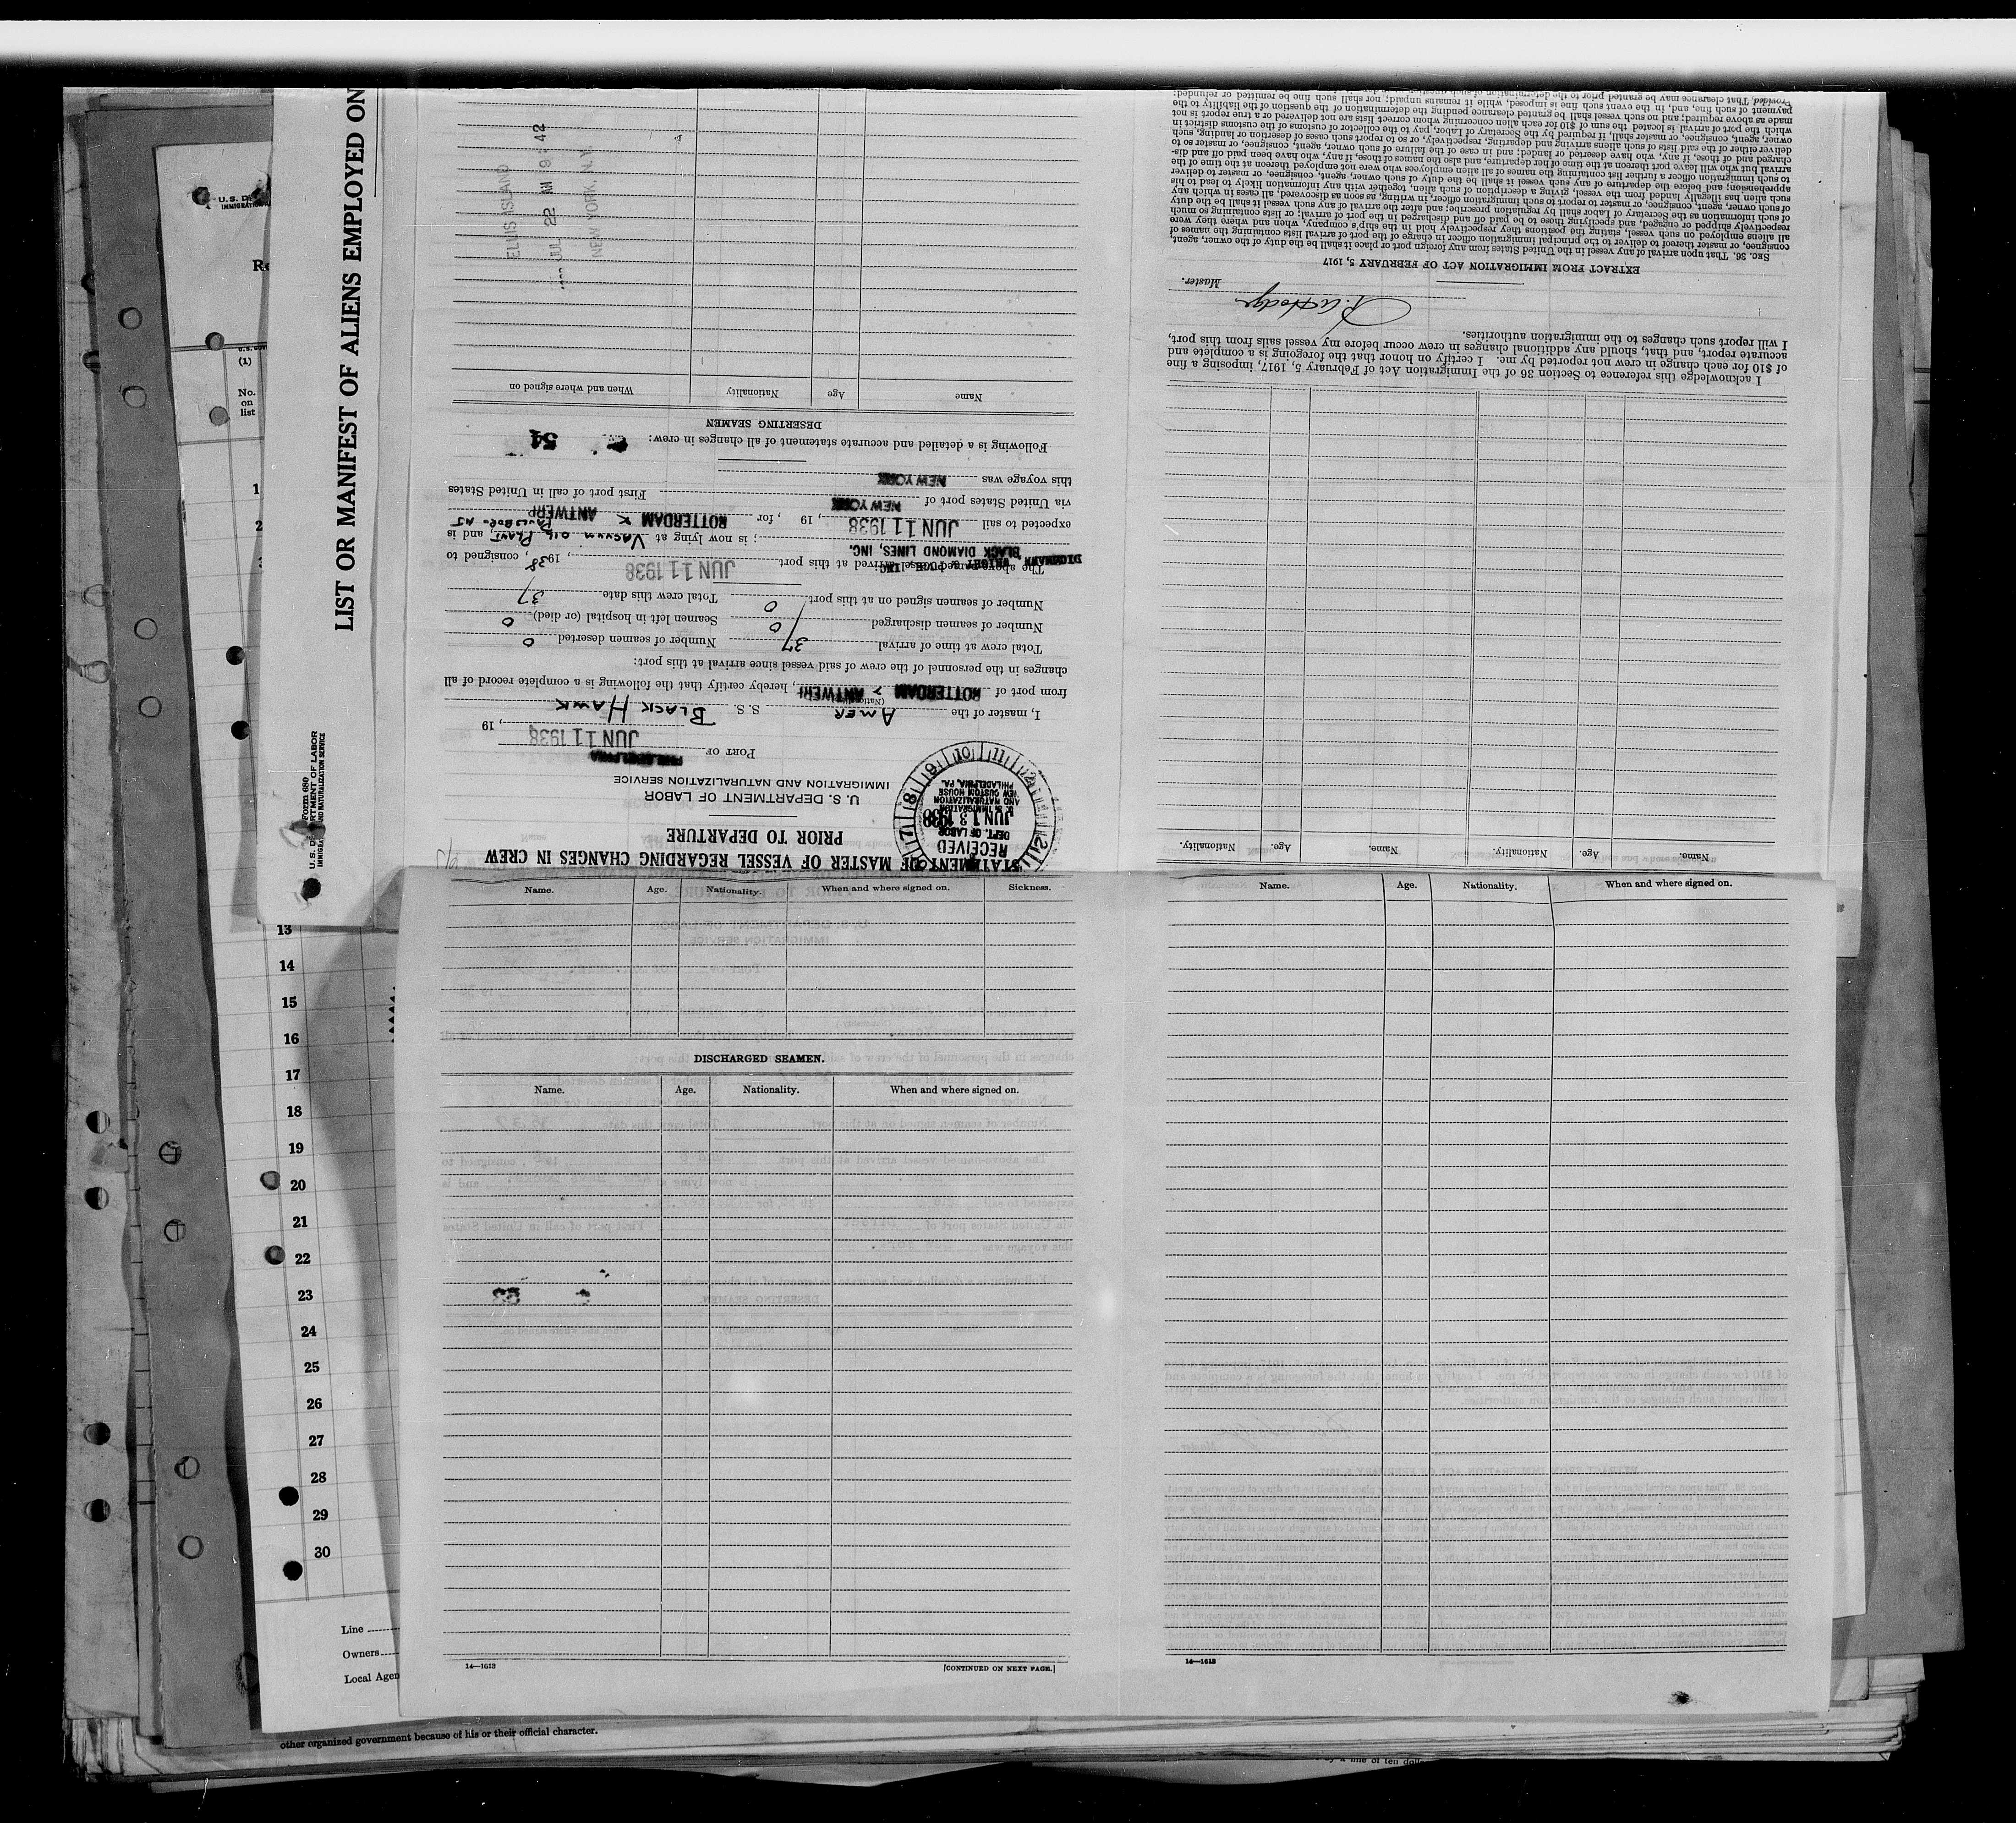 LIST OR MANIFEST OF ALIENS EMPLOYED ON
Form 680
U. S. DEPARTMENT OF LABOR
IMMIGRATION AND NATURALIZATION SERVICE
(1)
No.
on
list
1
2
3
13
14
15
16
17
18
19
20
21
22
23
24
25
26
27
28
29
30
Line
Owners
Local Agen
other organized government because of his or their official character.
STATEMENT OF MASTER OF VESSEL REGARDING CHANGES IN CREW
PRIOR TO DEPARTURE
U. S. DEPARTMENT OF LABOR
IMMIGRATION AND NATURALIZATION SERVICE
RECEIVED
DEPT. OF LABOR
JUN 13 1938
U. S. IMMIGRATION
AND NATURALIZATION
NEW CUSTOM HOUSE
PHILADELPHIA, PA.
PORT OF PHILADELPHIA
JUN 11 1938, 19
I, master of the AMER S. S. BLACK HAWK
(Nationality)
from port of ROTTERDAM > ANTWERP, hereby certify that the following is a complete record of all
changes in the personnel of the crew of said vessel since arrival at this port:
Total crew at time of arrival 37 Number of seamen deserted 0
Number of seamen discharged 0 Seamen left in hospital (or died) 0
Number of seamen signed on at this port 0 Total crew this date 37
The above-named vessel arrived at this port JUN 11 1938, 1938, consigned to
DICHMANN, WRIGHT & PUGH, INC.
BLACK DIAMOND LINES, INC.; is now lying at VACUUM OIL PLANT PAULSBORO NJ, and is
expected to sail JUN 11 1938, 19 , for ROTTERDAM & ANTWERP
via United States port of NEW YORK First port of call in United States
this voyage was NEW YORK
Following is a detailed and accurate statement of all changes in crew: 54
DESERTING SEAMEN
Name Age Nationality When and where signed on
ELLIS ISLAND
JUL 22 AM 9 42
NEW YORK, N. Y.
Name. Age. Nationality. Name. Age. Nationality.
I acknowledge this reference to Section 36 of the Immigration Act of February 5, 1917, imposing a fine
of $10 for each change in crew not reported by me. I certify on honor that the foregoing is a complete and
accurate report, and that, should any additional changes in crew occur before my vessel sails from this port,
I will report such changes to the immigration authorities.
Master.
EXTRACT FROM IMMIGRATION ACT OF FEBRUARY 5, 1917
SEC. 36. That upon arrival of any vessel in the United States from any foreign port or place it shall be the duty of the owner, agent,
consignee, or master thereof to deliver to the principal immigration officer in charge of the port of arrival lists containing the names of
all aliens employed on such vessel, stating the positions they respectively hold in the ship's company, when and where they were
respectively shipped or engaged, and specifying those to be paid off and discharged in the port of arrival; or lists containing so much
of such information as the Secretary of Labor shall by regulation prescribe; and after the arrival of any such vessel it shall be the duty
of such owner, agent, consignee, or master to report to such immigration officer, in writing, as soon as discovered, all cases in which any
such alien has illegally landed from the vessel, giving a description of such alien, together with any information likely to lead to his
apprehension; and before the departure of any such vessel it shall be the duty of such owner, agent, consignee, or master to deliver
to such immigration officer a further list containing the names of all alien employees who were not employed thereon at the time of the
arrival but who will leave port thereon at the time of her departure, and also the names of those, if any, who have been paid off and dis-
charged and of those, if any, who have deserted or landed; and in case of the failure of such owner, agent, consignee, or master so to
deliver either of the said lists of such aliens arriving and departing, respectively, or so to report such cases of desertion or landing, such
owner, agent, consignee, or master shall, if required by the Secretary of Labor, pay to the collector of customs of the customs district in
which the port of arrival is located the sum of $10 for each alien concerning whom correct lists are not delivered or a true report is not
made as above required; and no such vessel shall be granted clearance pending the determination of the question of the liability to the
payment of such fine, and, in the event such fine is imposed, while it remains unpaid; nor shall such fine be remitted or refunded:
Provided, That clearance may be granted prior to the determination of such question
Name. Age. Nationality. When and where signed on. Sickness.
DISCHARGED SEAMEN.
Name. Age. Nationality. When and where signed on.
14—1613 [CONTINUED ON NEXT PAGE.]
Name. Age. Nationality. When and where signed on.
14—1613